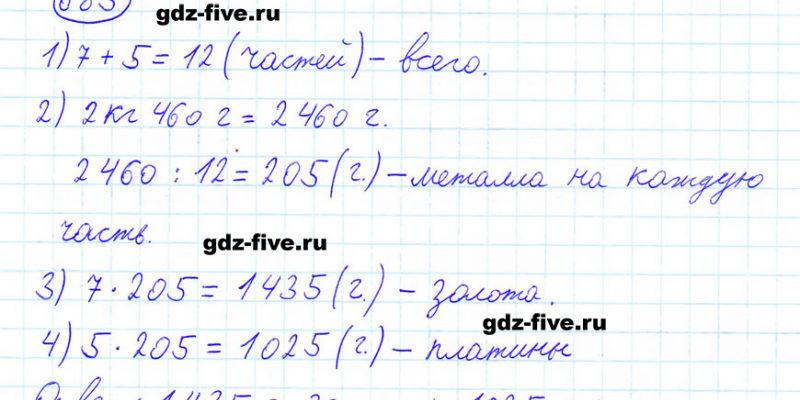 gdz-five.ru
1) 7 + 5 = 12 (частей) – всего.
2) 2 кг 460 г = 2460 г.
2460 : 12 = 205 (г.) – металла на каждую
часть.
gdz-five.ru
3) 7 · 205 = 1435 (г.) – золота.
gdz-five.ru
4) 5 · 205 = 1025 (г.) – платины